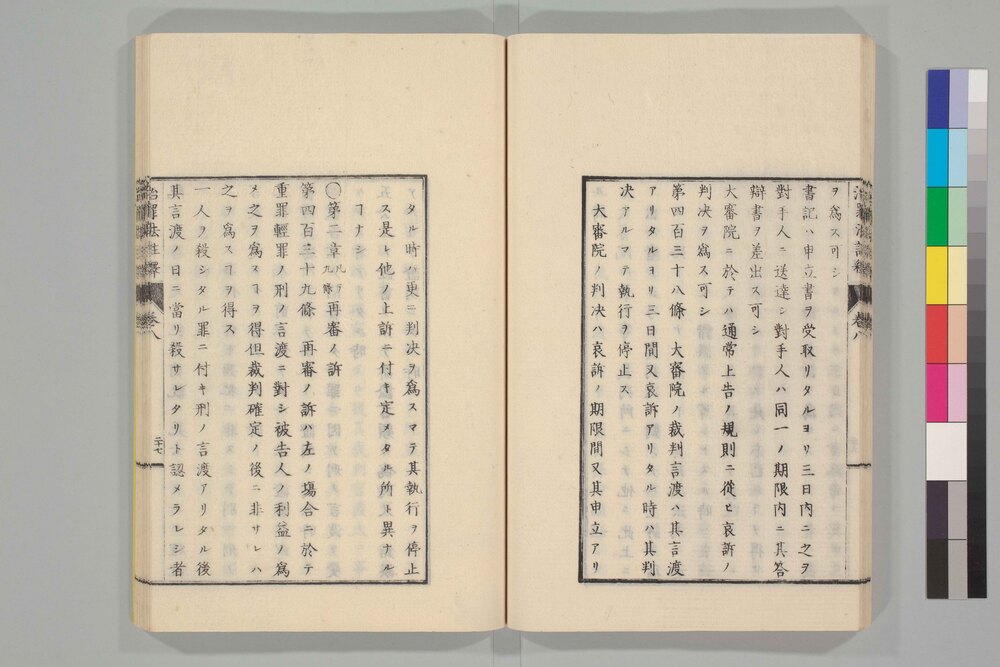 ヲ爲ス可シ
書記ハ申立書ヲ受取リタルヨリ三日内ニ之ヲ
對手人ニ送達シ對手人ハ同一ノ期限内ニ其答
辯書ヲ差出ス可シ
大審院ニ於テハ通常上告ノ規則ニ從ヒ哀訴ノ
判決ヲ爲ス可シ
第四百三十八條 大審院ノ裁判言渡ハ其言渡
アリタルヨリ三日間又哀訴アリタル時ハ其判
决アルマテ執行ヲ停止ス
大審院ノ判决ハ哀訴ノ期限間又其申立アリ
タル時ハ更ニ判决ヲ爲スマテ其執行ヲ停止
ス是レ他ノ上訴ニ付キ定メタル所ト異ナル
ヿナシ
◯第二章 凡テ九條 再審ノ訴
第四百三十九條 再審ノ訴ハ左ノ塲合ニ於テ
重罪輕罪ノ刑ノ言渡ニ對シ被告人ノ利益ノ爲
メ之ヲ爲スヿヲ得但裁判確定ノ後ニ非サレハ
之ヲ爲スヿヲ得ス
一人ヲ殺シタル罪ニ付キ刑ノ言渡アリタル後
其言渡ノ日ニ當リ殺サレタリト認メラレシ者
卷八
二十七